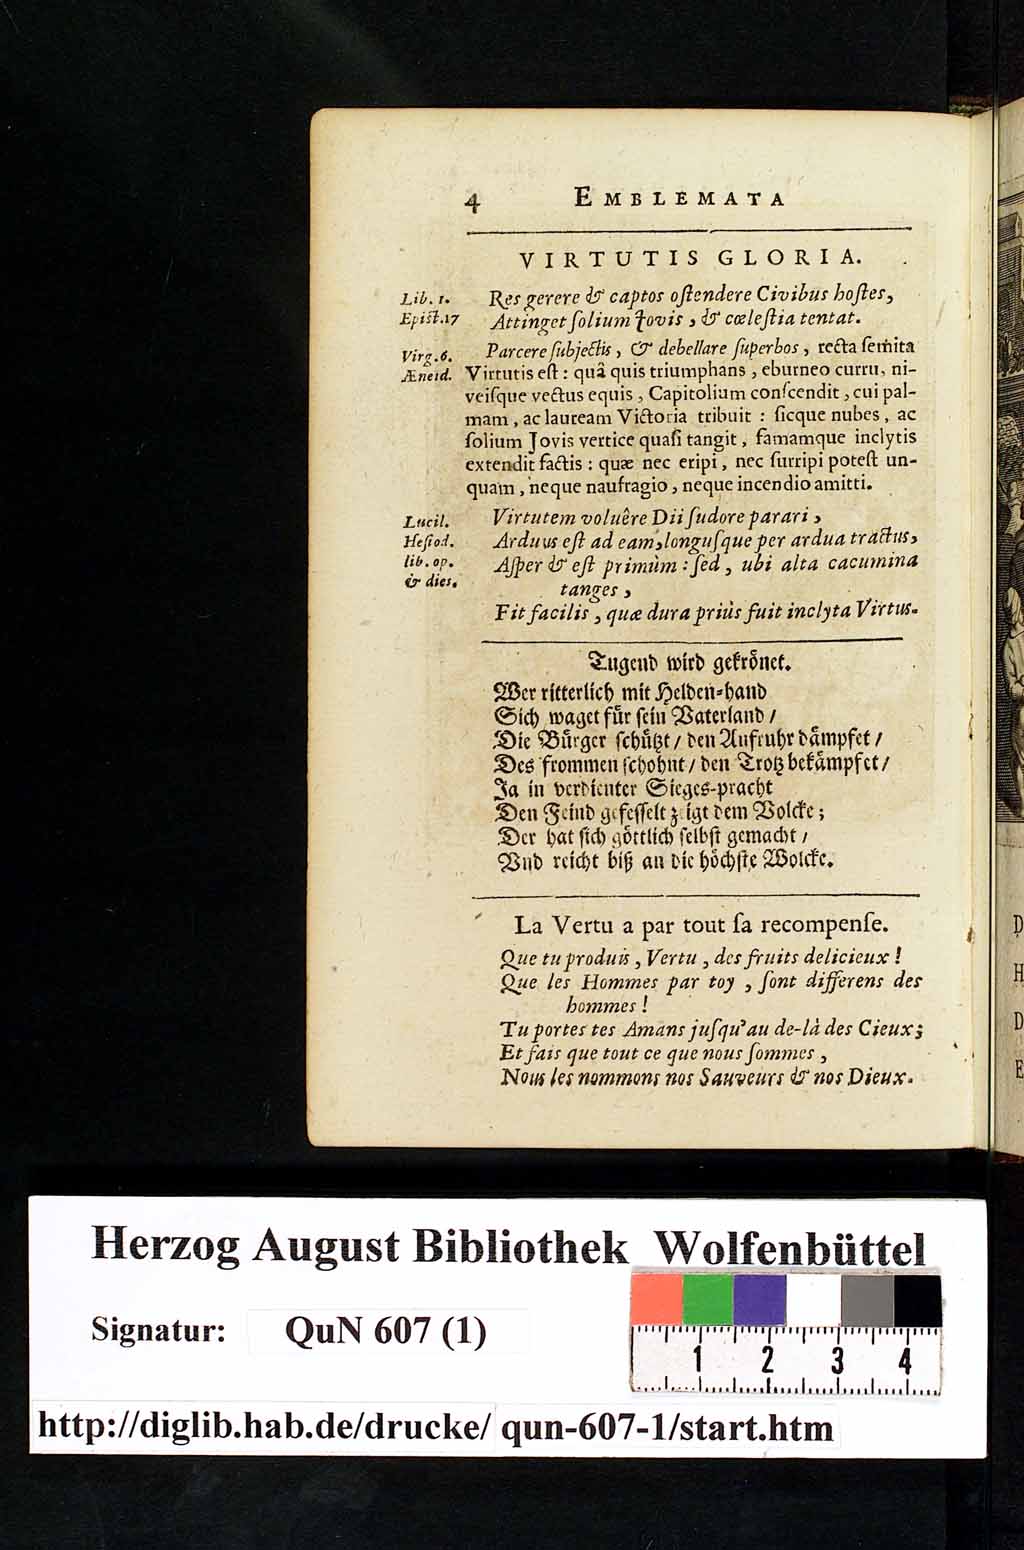 4 EMBLEMATA
VIRTUTIS GLORIA.
Lib. 1.
Epiſt.17
Res gerere & captos oſtendere Civibus hoſtes,
Attinget ſolium Jovis, & cœleſtia tentat.
Virg. 6.
Æneid.
Parcere ſubjectis, & debellare ſuperbos, recta ſemita
Virtutis eſt: quâ quis triumphans, eburneo curru, ni-
veiſque vectus equis, Capitolium conſcendit, cui pal-
mam, ac lauream Victoria tribuit: ſicque nubes, ac
ſolium Jovis vertice quaſi tangit, famamque inclytis
extendit factis: quæ nec eripi, nec ſurripi poteſt un-
quam, neque naufragio, neque incendio amitti.
Lucil.
Heſiod.
lib. op.
& dies.
Virtutem voluêre Dii ſudore parari,
Arduus eſt ad eam, longuſque per ardua tractus,
Aſper & eſt primùm: ſed, ubi alta cacumina
tanges,
Fit facilis, quæ dura priùs fuit inclyta Virtus.
Tugend wird gekrönet.
Wer ritterlich mit Helden-hand
Sich waget für ſein Vaterland /
Die Bürger ſchützt / den Aufruhr dämpfet /
Des frommen ſchohnt / den Trotz bekämpfet /
Ja in verdienter Sieges-pracht
Den Feind gefeſſelt zeigt dem Volcke;
Der hat ſich göttlich ſelbſt gemacht /
Vnd reicht biß an die höchſte Wolcke.
La Vertu a par tout ſa recompenſe.
Que tu produis, Vertu, des fruits delicieux!
Que les Hommes par toy, ſont differens des
hommes!
Tu portes tes Amans juſqu'au de-là des Cieux;
Et fais que tout ce que nous ſommes,
Nous les nommons nos Sauveurs & nos Dieux.
D
H
D
E
Herzog August Bibliothek Wolfenbüttel
Signatur: QuN 607 (1)
1 2 3 4
http://diglib.hab.de/drucke/ qun-607-1/start.htm